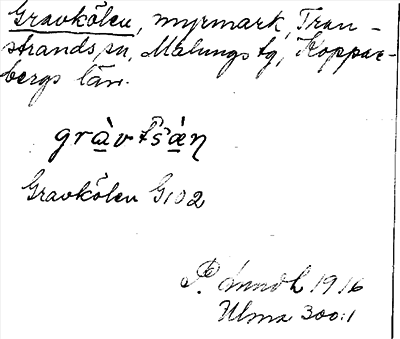 Gravkölen, myrmark, Tran-
strands sn, Malungs tg, Koppar-
bergs län.
gràvtšàṇ
Gravkölen G102
P. Lundh 1916
Ulma 300:1